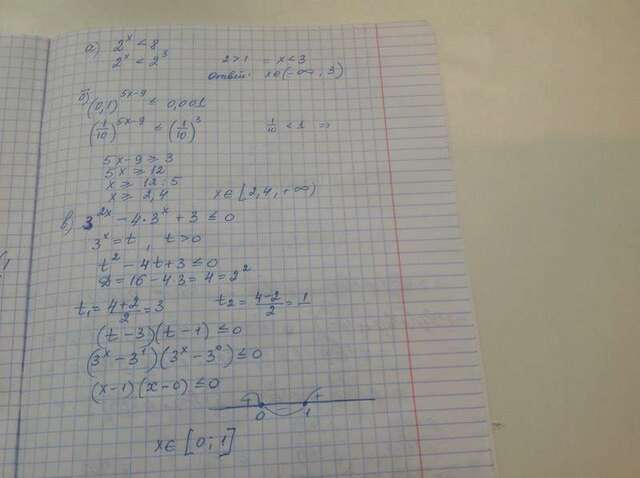 а) 2^x < 8
2^x < 2^3 2>1 = x<3
Ответ: x∈(-∞; 3)
б) (0,1)^{5x-9} ≤ 0,001
(1/10)^{5x-9} ≤ (1/10)^3 1/10 < 1 ⇒
5x-9 ≥ 3
5x ≥ 12
x ≥ 12:5
x ≥ 2,4 x∈[2,4, +∞)
в) 3^{2x} - 4·3^x + 3 ≤ 0
3^x = t, t>0
t^2 - 4t + 3 ≤ 0
D = 16 - 4·3 = 4 = 2^2
t₁ = (4+2)/2 = 3 t₂ = (4-2)/2 = 1
(t-3)(t-1) ≤ 0
(3^x - 3^1)(3^x - 3^0) ≤ 0
(x-1)(x-0) ≤ 0
+ - +
0 1
x∈[0; 1]